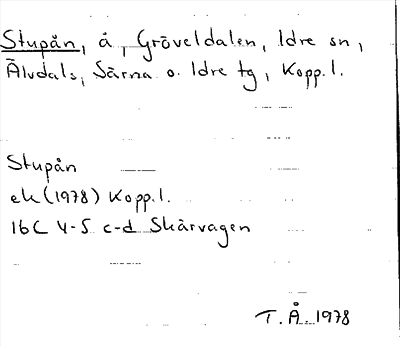 Stupån, å, Gröveldalen, Idre sn,
Älvdals, Särna o. Idre tg, Kopp.l.
Stupån
ek (1978) Kopp.l.
16C 4-5 c-d Skärvagen
T.Å. 1978